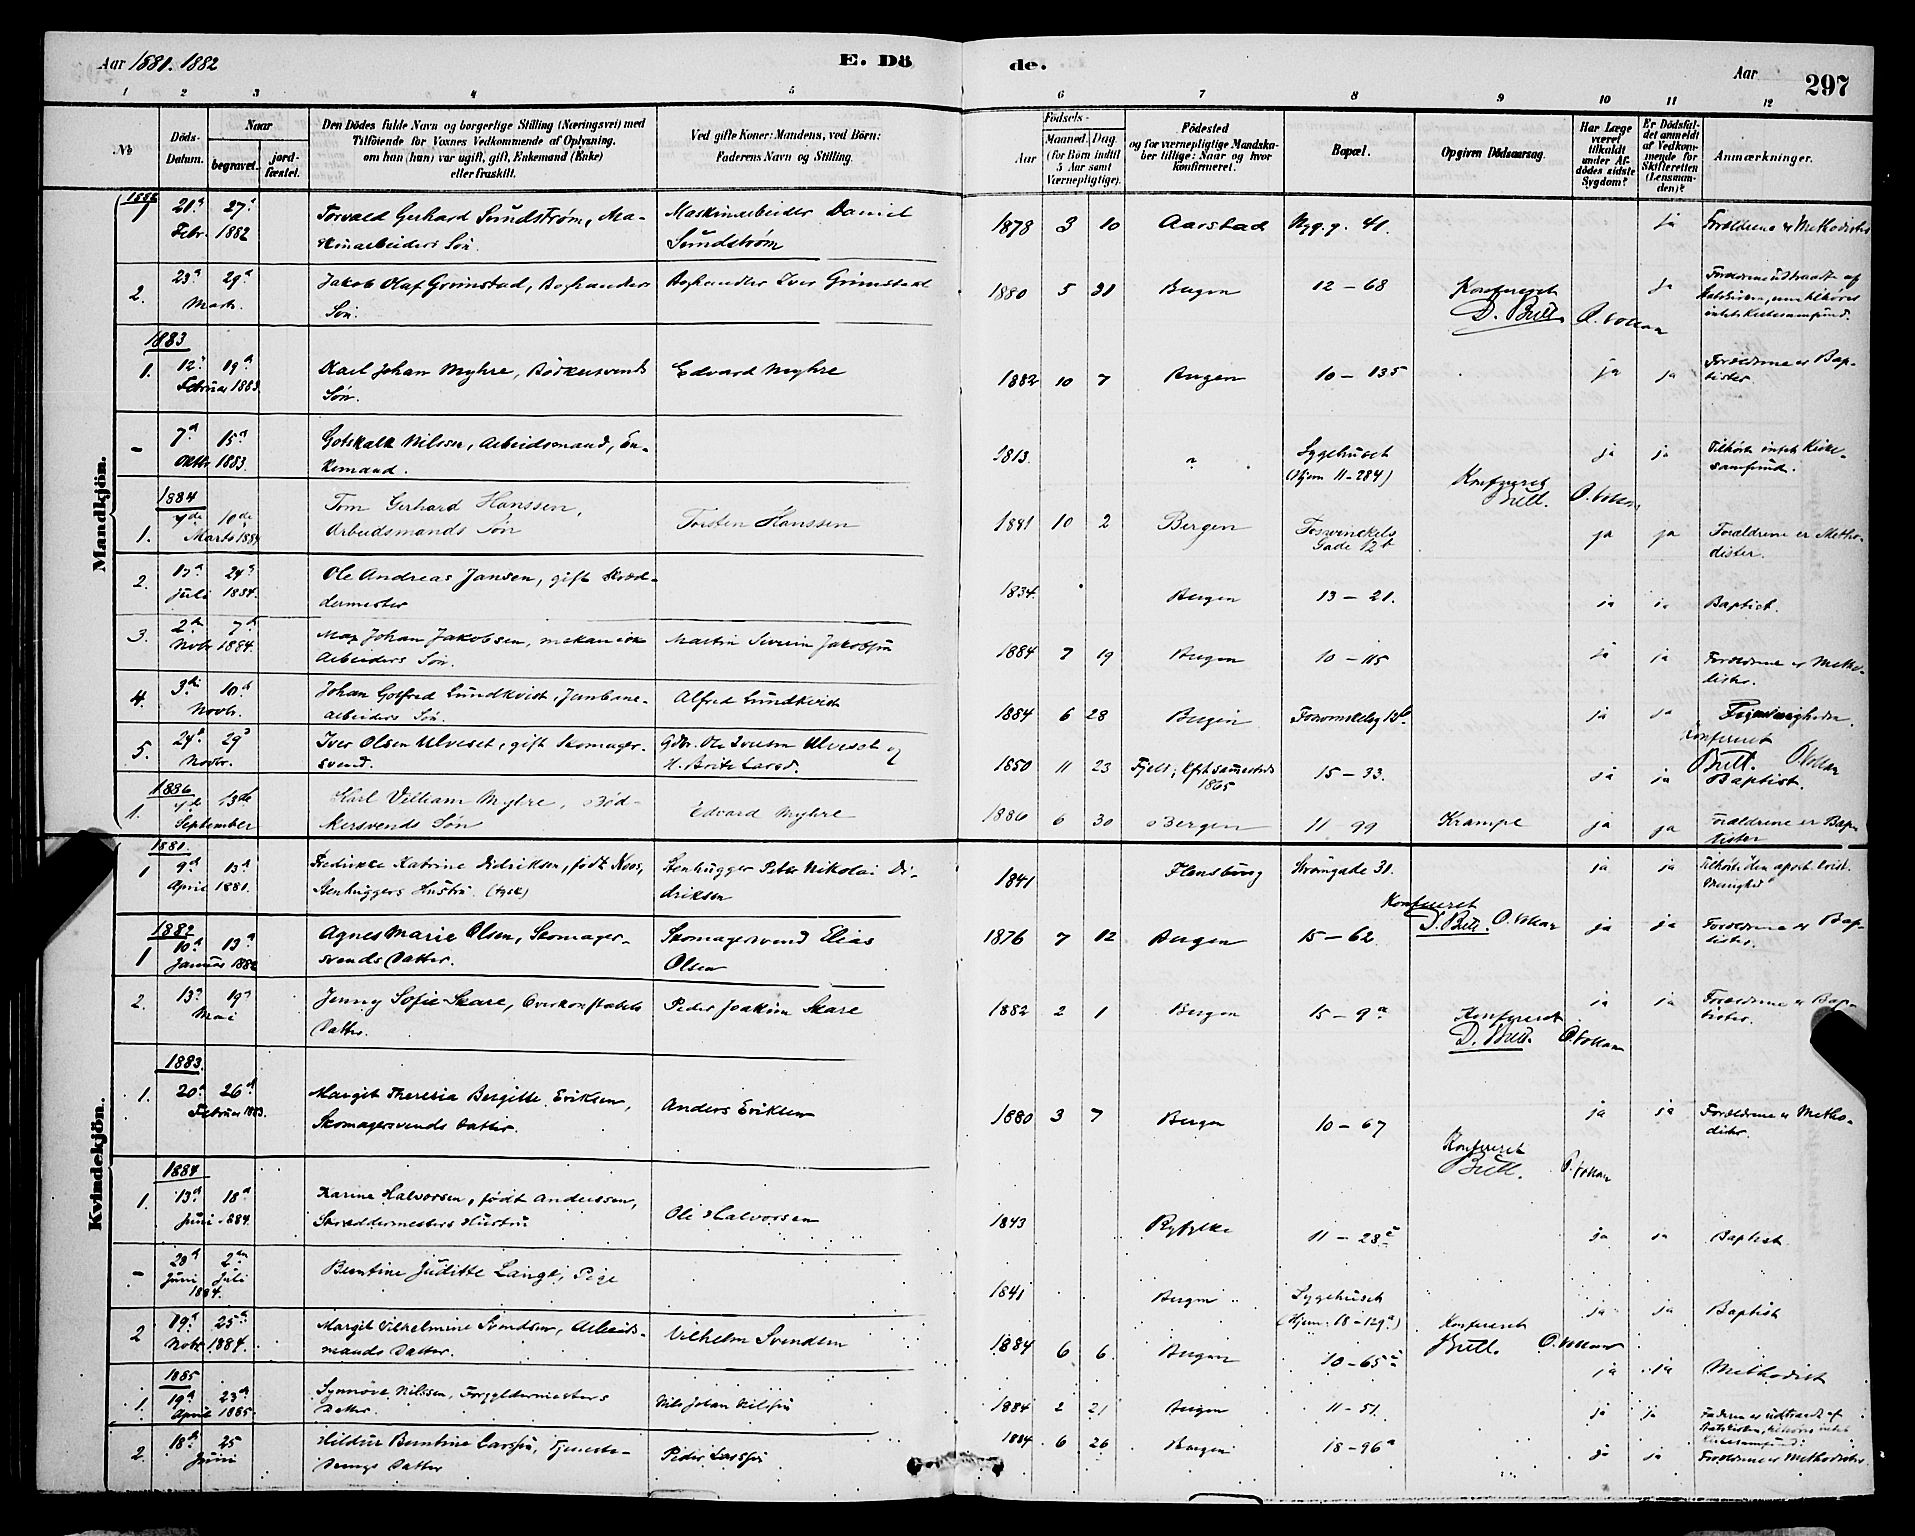 Aar 1881. 1882
E. Dö
de.
Aar
297
1 2 3 4 5 6 7 8 9 10 11 12
№
Döds-Datum.
Naar
begravet.
jord-fæstet.
Den Dödes fulde Navn og borgerlige Stilling (Næringsvei) med
Tilföiende for Voxnes Vedkommende af Oplysning,
om han (hun) var ugift, gift, Enkemand (Enke)
eller fraskilt.
Ved gifte Koner: Mandens, ved Börn:
Faderens Navn og Stilling.
Födsels-
Aar
Maaned.
Dag.
(for Börn indtil
5 Aar samt
Værnepligtige).
Födested
og for værnepligtige Mandska-
ber tillige: Naar og hvor
konfirmeret.
Bopæl.
Opgiven Dödsaarsag.
Har Læge
været
tilkaldt
under Af-
dödes sidste
Sygdom?
Er Dödsfal-
det anmeldt
af Vedkom-
mende for
Skifteretten
(Lensman-
den)?
Anmærkninger.
Mandkjön.
1882
1 21de 27de Torvald Gerhard Sundström, Ma- Maskinarbeider Daniel 1878 3 10 Aarstad Nyg.g. 41. ja Forældrene er Methodister
Febr. 1882 skinarbeiders Sön. Sundström
2. 23de 29de Jakob Olaf Grimstad, Boghandlers Boghandler Iver Grimstad 1880 5 21 Bergen 12 – 68 Konfereret ja Forældrene udtraadt af
Marts. Sön. D. Bull. O. Vollan Statskirken, men tilhörer
intet Kirkesamfund.
1883
1. 12te 19de Karl Johan Myhre, Bödkersvends Edvard Myhre 1882 10 7 Bergen 10 – 135 ja ja Forældrene er Bap-
Februar 1883. Sön. tister.
– 7de 15de Gotskalk Nilssen, Arbeidsmand, En- 1813. " Sygehuset ja ja Tilhörte intet Kirke-
Oktbr 1883. kemand. (Hjem 11–284) samfund.
Konfereret
Bull. O. Vollan
1884
1. 4de 10de Tom Gerhard Hanssen, Torsten Hanssen 1881 10 2 Bergen Foswinckels ja ja Forældrene er Metho-
Marts 1884 Arbeidsmands Sön Gade 12b dister.
2. 24de Ole Andreas Jansen, gift Skræd- 1834. Bergen 13 – 21. ja ja Baptist.
Juli 1884. dermester
3. 2den 7de Max Johan Jakobsen, mekanisk Martin Severin Jakobsen 1884 7 19 Bergen 10 – 115 ja ja Forældrene er Metho-
Novbr 1884. Arbeiders Sön. dister.
4. 3die 10de Johan Gotfred Lundkvist, Jernbane- Alfred Lundkvist 1884 6 28 Bergen ja ja Frimenigheden.
Novbr. arbeiders Sön.
Konfereret
Bull. O. Vollan
5. 24de 29de Iver Olsen Ulveset, gift Skomager- Gdbr. Ole Iversen Ulveset og 1850 11 23 Fjeld; kfrt sammesteds 15 – 33. ja ja Baptist.
Novbr. svend. H. Brite Larsd. 1865
1886
1. 13de Karl Villiam Myhre, Böd- Edvard Myhre 1886 6 30 Bergen 11 99 Krampe ja ja Forældrene er Bap-
September kersvends Sön tister
Kvindekjön.
1881.
1 9de 13de Fredrikke Katrine Didriksen, födt Koos, Stenhugger Peter Nikolai Di- 1841 Flensburg Strömgade 31. ja ja Tilhörte den apost. krist.
April 1881. Stenhuggers Hustru. (tysk) driksen Menighed
Konfereret
D. Bull. O. Vollan
1882
1 10de 13de Agnes Marie Olsen, Skomager- Skomagersvend Elias 1876 7 12 Bergen 15 – 62 ja ja Forældrene er Bap-
Januar 1882 svends Datter. Olsen tister.
2. 13de 19de Jenny Sofie Skare, Overkonstabels Peder Joakim Skare 1882 2 1 Bergen 15 – 9a ja ja Forældrene er Bap-
Mai Datter. tister.
Konfereret
D. Bull. O. Vollan
1883.
1. 20de 26de Margit Theresia Bergitte Eriksen, Anders Eriksen 1880 3 7 Bergen 10 – 67 ja ja Forældrene er Metho-
Februar 1883. Skomagersvends Datter. dister.
Konfereret
Bull. O. Vollan
1884
1. 13de 18de Karine Halvorsen, födt Anderssen, Ole Halvorsen 1843 Ryfylke 11 – 28c ja ja Baptist.
Juni 1884. Skræddermesters Hustru
– 28de 2den Berntine Juditte Lange, Pige 1841 Bergen Sygehuset ja ja Baptist
Juni Juli (Hjem. 18–129a)
1884.
2 19de 25de Margit Vilhelmine Svendsen, Arbeids- Vilhelm Svendsen 1884 6 6 Bergen 10–65c Konfereret ja ja Methodist
Novbr 1884. mands Datter. Bull. O. Vollan
1885
1. 19de 23de Synnöve Nilssen, Forgyldermesters Nils Johan Nilssen 1884 2 21 Bergen 11–51. ja ja Faderen er udtraadt af
April 1885. Datter. Statskirken, tilhörer intet
Kirkesamfund.
2. 18de 25 Hildur Berntine Larssen, Tjeneste- Peder Larssen 1884 6 26 Bergen 18–96a ja ja Forældrene er Methodister
Juni drengs Datter